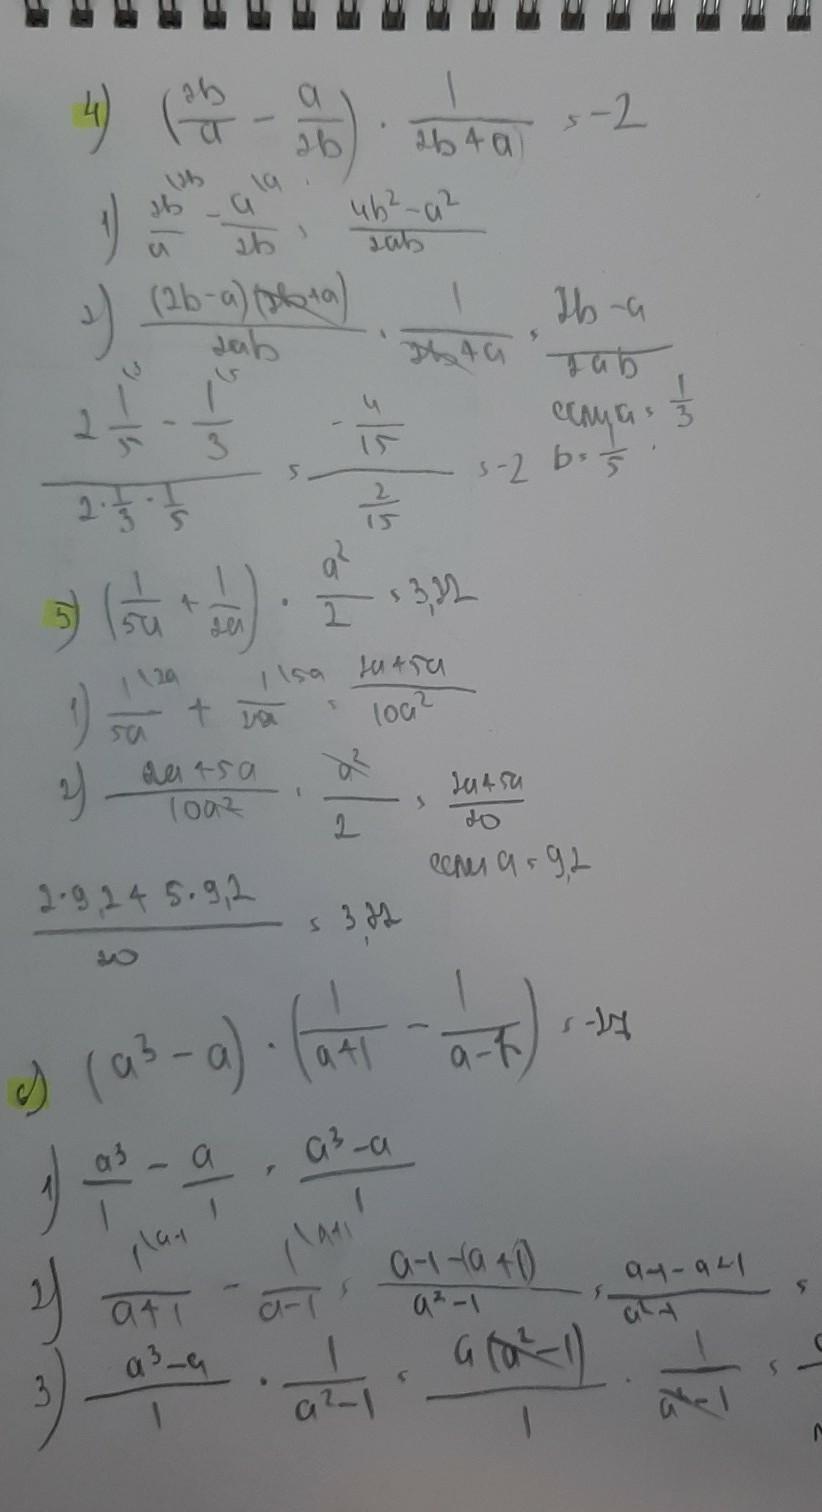 4) (2b/a - a/2b) · 1/(2b+a) = -2
1) 2b\2b/a - a\a/2b = (4b² - a²)/2ab
2) (2b-a)(2b+a)/2ab · 1/(2b+a) = (2b-a)/2ab
если a = 1/3
b = 1/5
(2 1/5 - 1/3)/(2 · 1/3 · 1/5) = (-4/15)/(2/15) = -2
5) (1/5a + 1/2a) · a²/2 = 3,22
1) 1\2a/5a + 1\5a/2a = (2a+5a)/10a²
2) (2a+5a)/10a² · a²/2 = (2a+5a)/20
если a = 9,2
(2·9,2 + 5·9,2)/20 = 3,22
(a³ - a) · (1/(a+1) - 1/(a-1)) =
1) a³/1 - a/1 = (a³-a)/1
2) 1\a-1/(a+1) - 1\a+1/(a-1) = (a-1-(a+1))/(a²-1) =
3) (a³-a)/1 · 1/(a²-1) = a(a²-1)/1 · 1/(a²-1) =